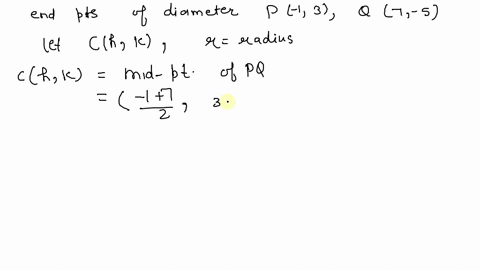 end pts of diameter P (-1, 3), Q (7, -5)
let C(h, k), r = radius
C(h, k) = mid-pt. of PQ
= ( \frac{-1+7}{2}, 3